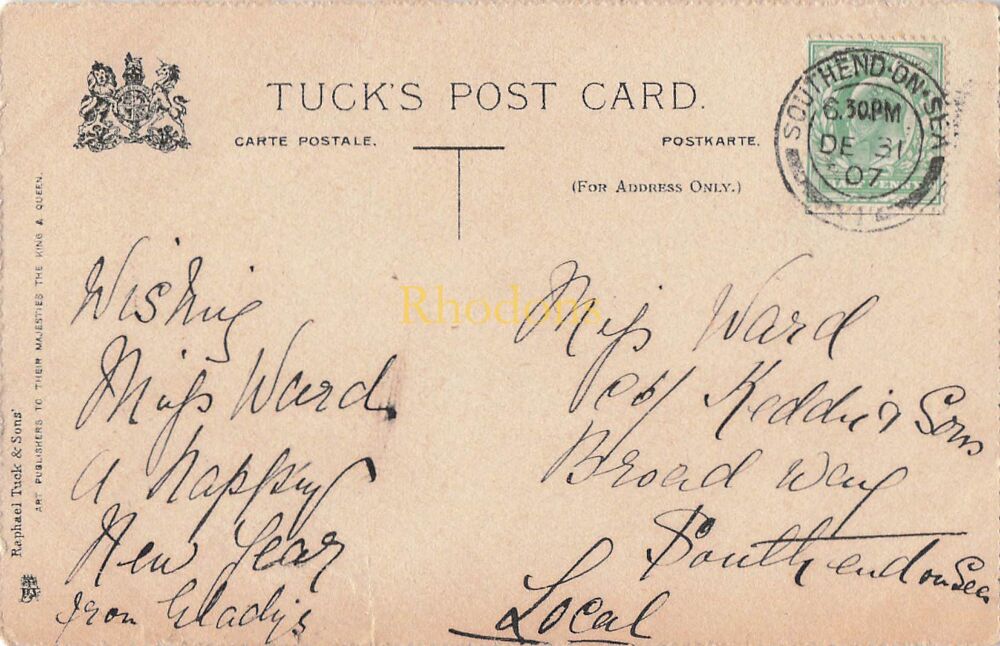 TUCK'S POST CARD.
CARTE POSTALE. POSTKARTE.
(FOR ADDRESS ONLY.)
SOUTHEND-ON-SEA
6.30PM
DE 31
07
Raphael Tuck & Sons'
ART PUBLISHERS TO THEIR MAJESTIES THE KING & QUEEN.
Wishing
Miss Ward
a happy
New Year
from Gladys
Rhodons
Miss Ward
c/o Keddie & Sons
Broad Way
Southend on Sea
Local